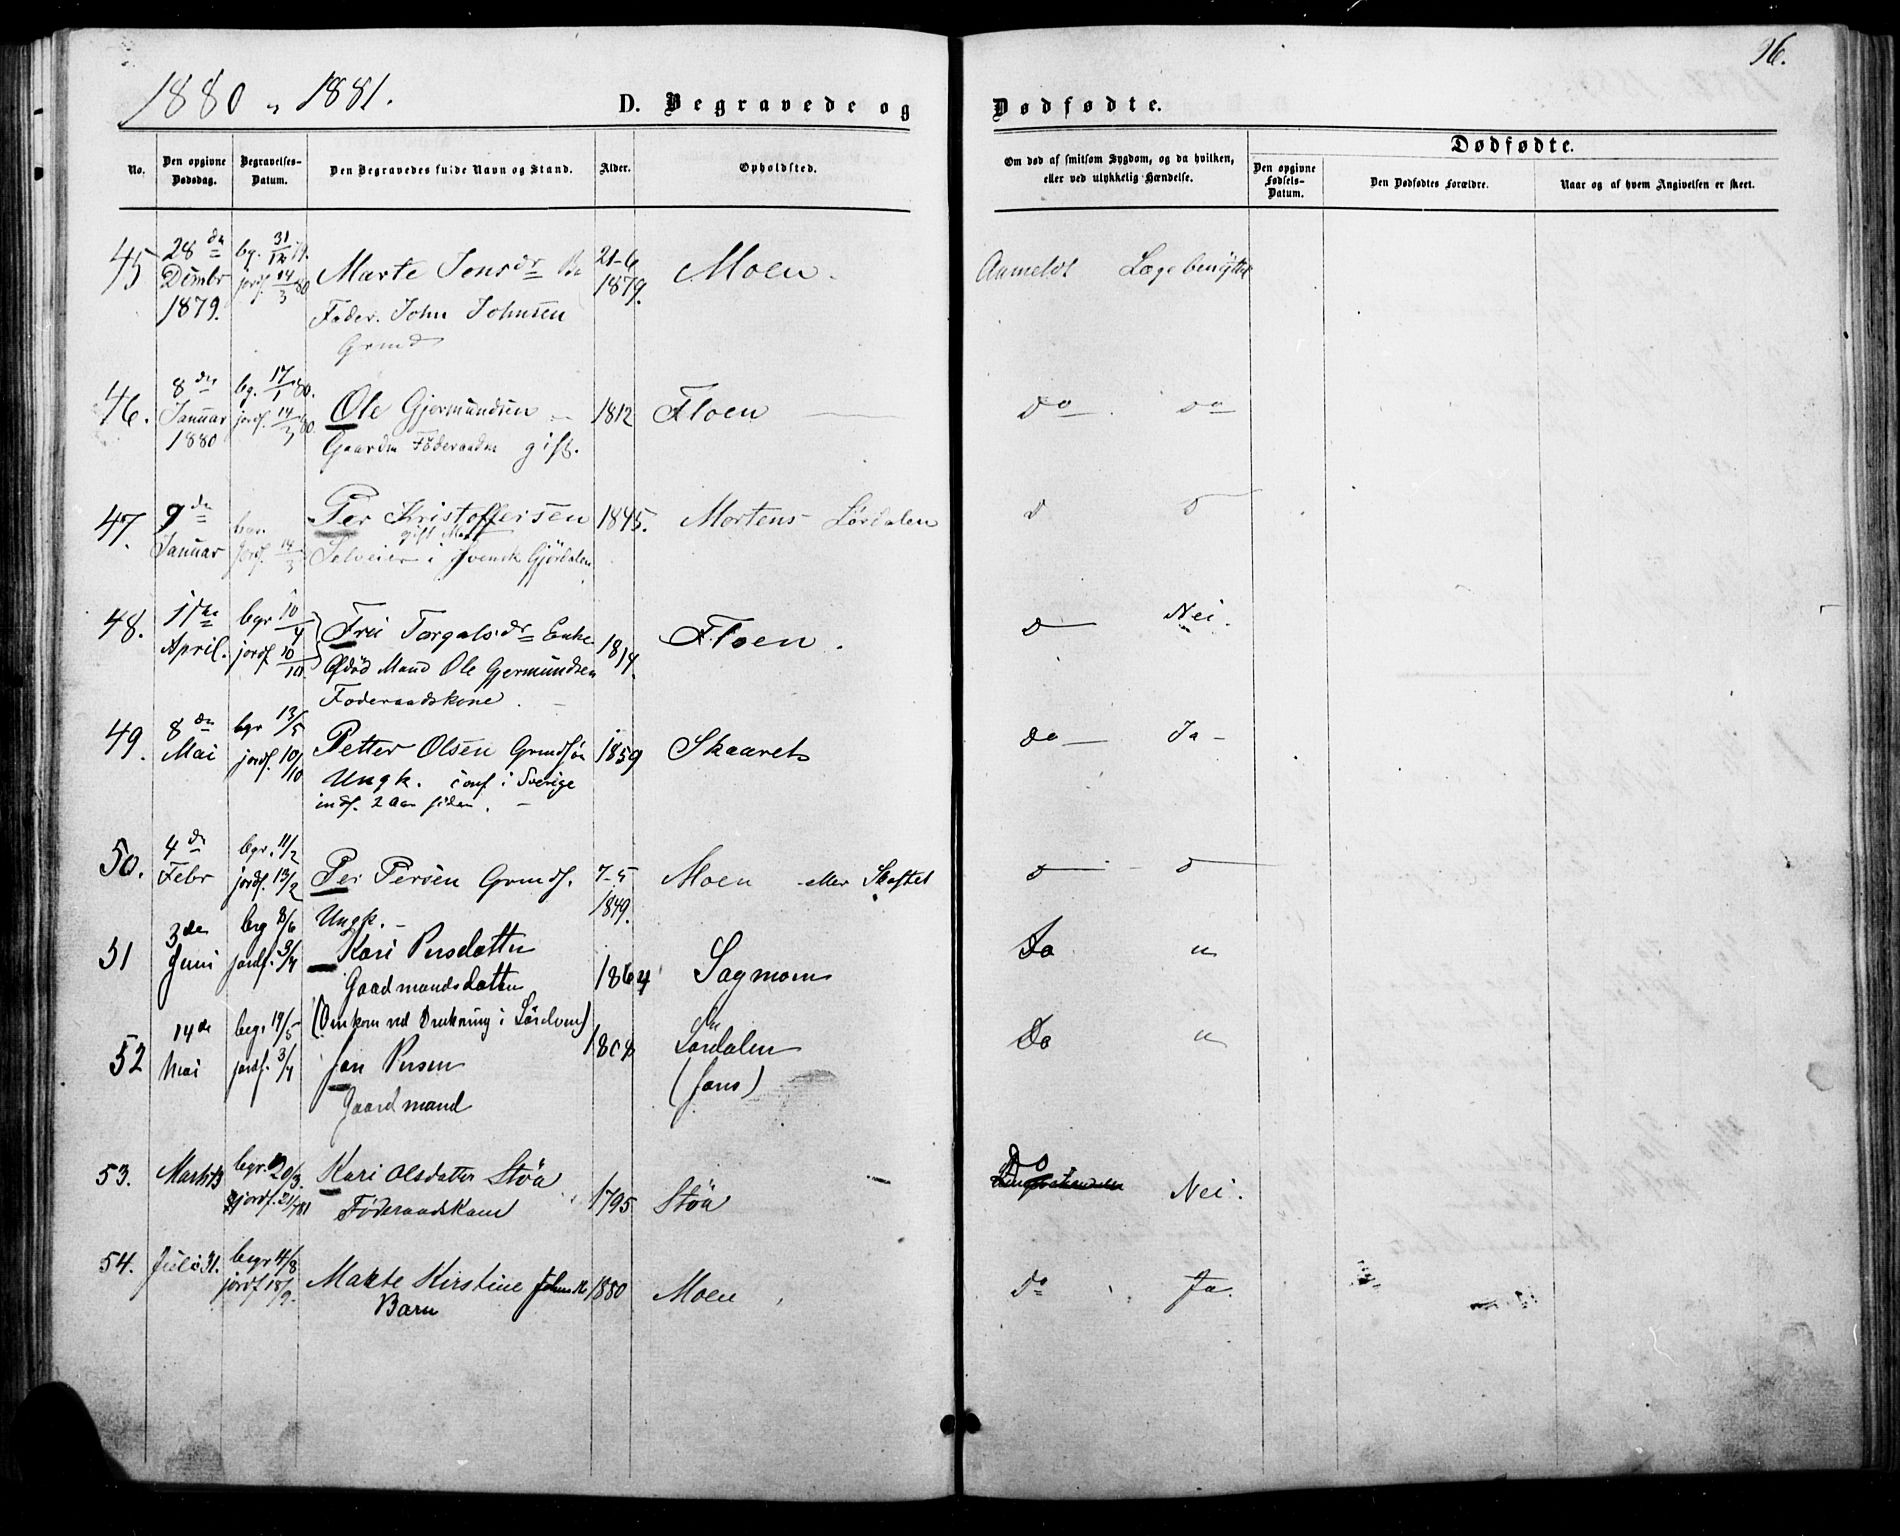 96.
1880 " 1881.
D. Begravede og Dødfødte.
No.
Den opgivne Dødsdag.
Begravelses-Datum.
Den Begravedes fulde Navn og Stand.
Alder.
Opholdsted.
Om død af smitsom Sygdom, og da hvilken, eller ved ulykkelig Hændelse.
Dødfødte.
Den opgivne Fødsels-Datum.
Den Dødfødtes Forældre.
Naar og af hvem Angivelsen er skeet.
45 28 de bg. 31/12 79. Marte Jensdr 21-6 Moen. Anmeldt Læge benyttet
Dcmbr 1879. jordf. 14/3 80 1879.
Fader. John Johnsen
Grmd
46. 8 de bg. 17/1 80. Ole Gjermundsen 1812 Floen do do
Januar 1880 jordf. 14/3 80.
Gaardm Föderaadm gift.
47. 9 de Januar begr. Per Kristoffersen 1845. Mortens Lördalen
gift Mand
jordf. 14/3 Selveier i Svensk
48. 11te April. begr 10/4 Torgalsdr Enke 1814. Floen. Nei.
jordf 10/10. Afdöd Mand Ole Gjermundsen
Föderaadskone.
49. 8 de Mai begr 13/5 Petter Olsen Grmdsøn 1859 Skaaret do Ja
jordf. 10/10 Ungk. conf i Sverige
indf. 2 Aar siden.
50. 4 de Febr begr. 11/2 Per Persen Grmds. 7-5 1849. Moen eller Skaftet
jordf. 13/2 Ungk.
51 3 de Juni beg 8/6 Kari Persdatter 1864 Sagmoen Do "
jordf. 3/7 Gaardmandsdatter
52 14 de Mai begr 19/5 (Omkom ved Drukning i Lördalen) 1808 Lördalen Do "
jordf. 3/7 Jon Persen (Jons)
Gaardmand
53. Marts 13 begr. 20/3. Kari Olsdatter Stöa 1795 Stöa Do Nei.
jordf. 24/7 81 Föderaadskone
54. Juli 31. begr 4/8 Marte Kirstine Johnsdr 1880 Moen do Ja.
jordf 18/9. Barn